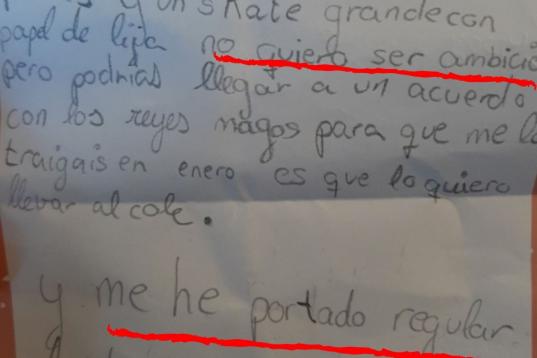 y un skate grande con
papel de lija no quiero ser ambicio
pero podrias llegar a un acuerdo
con los reyes magos para que me lo
traigais en enero es que lo quiero
llevar al cole.
y me he portado regular